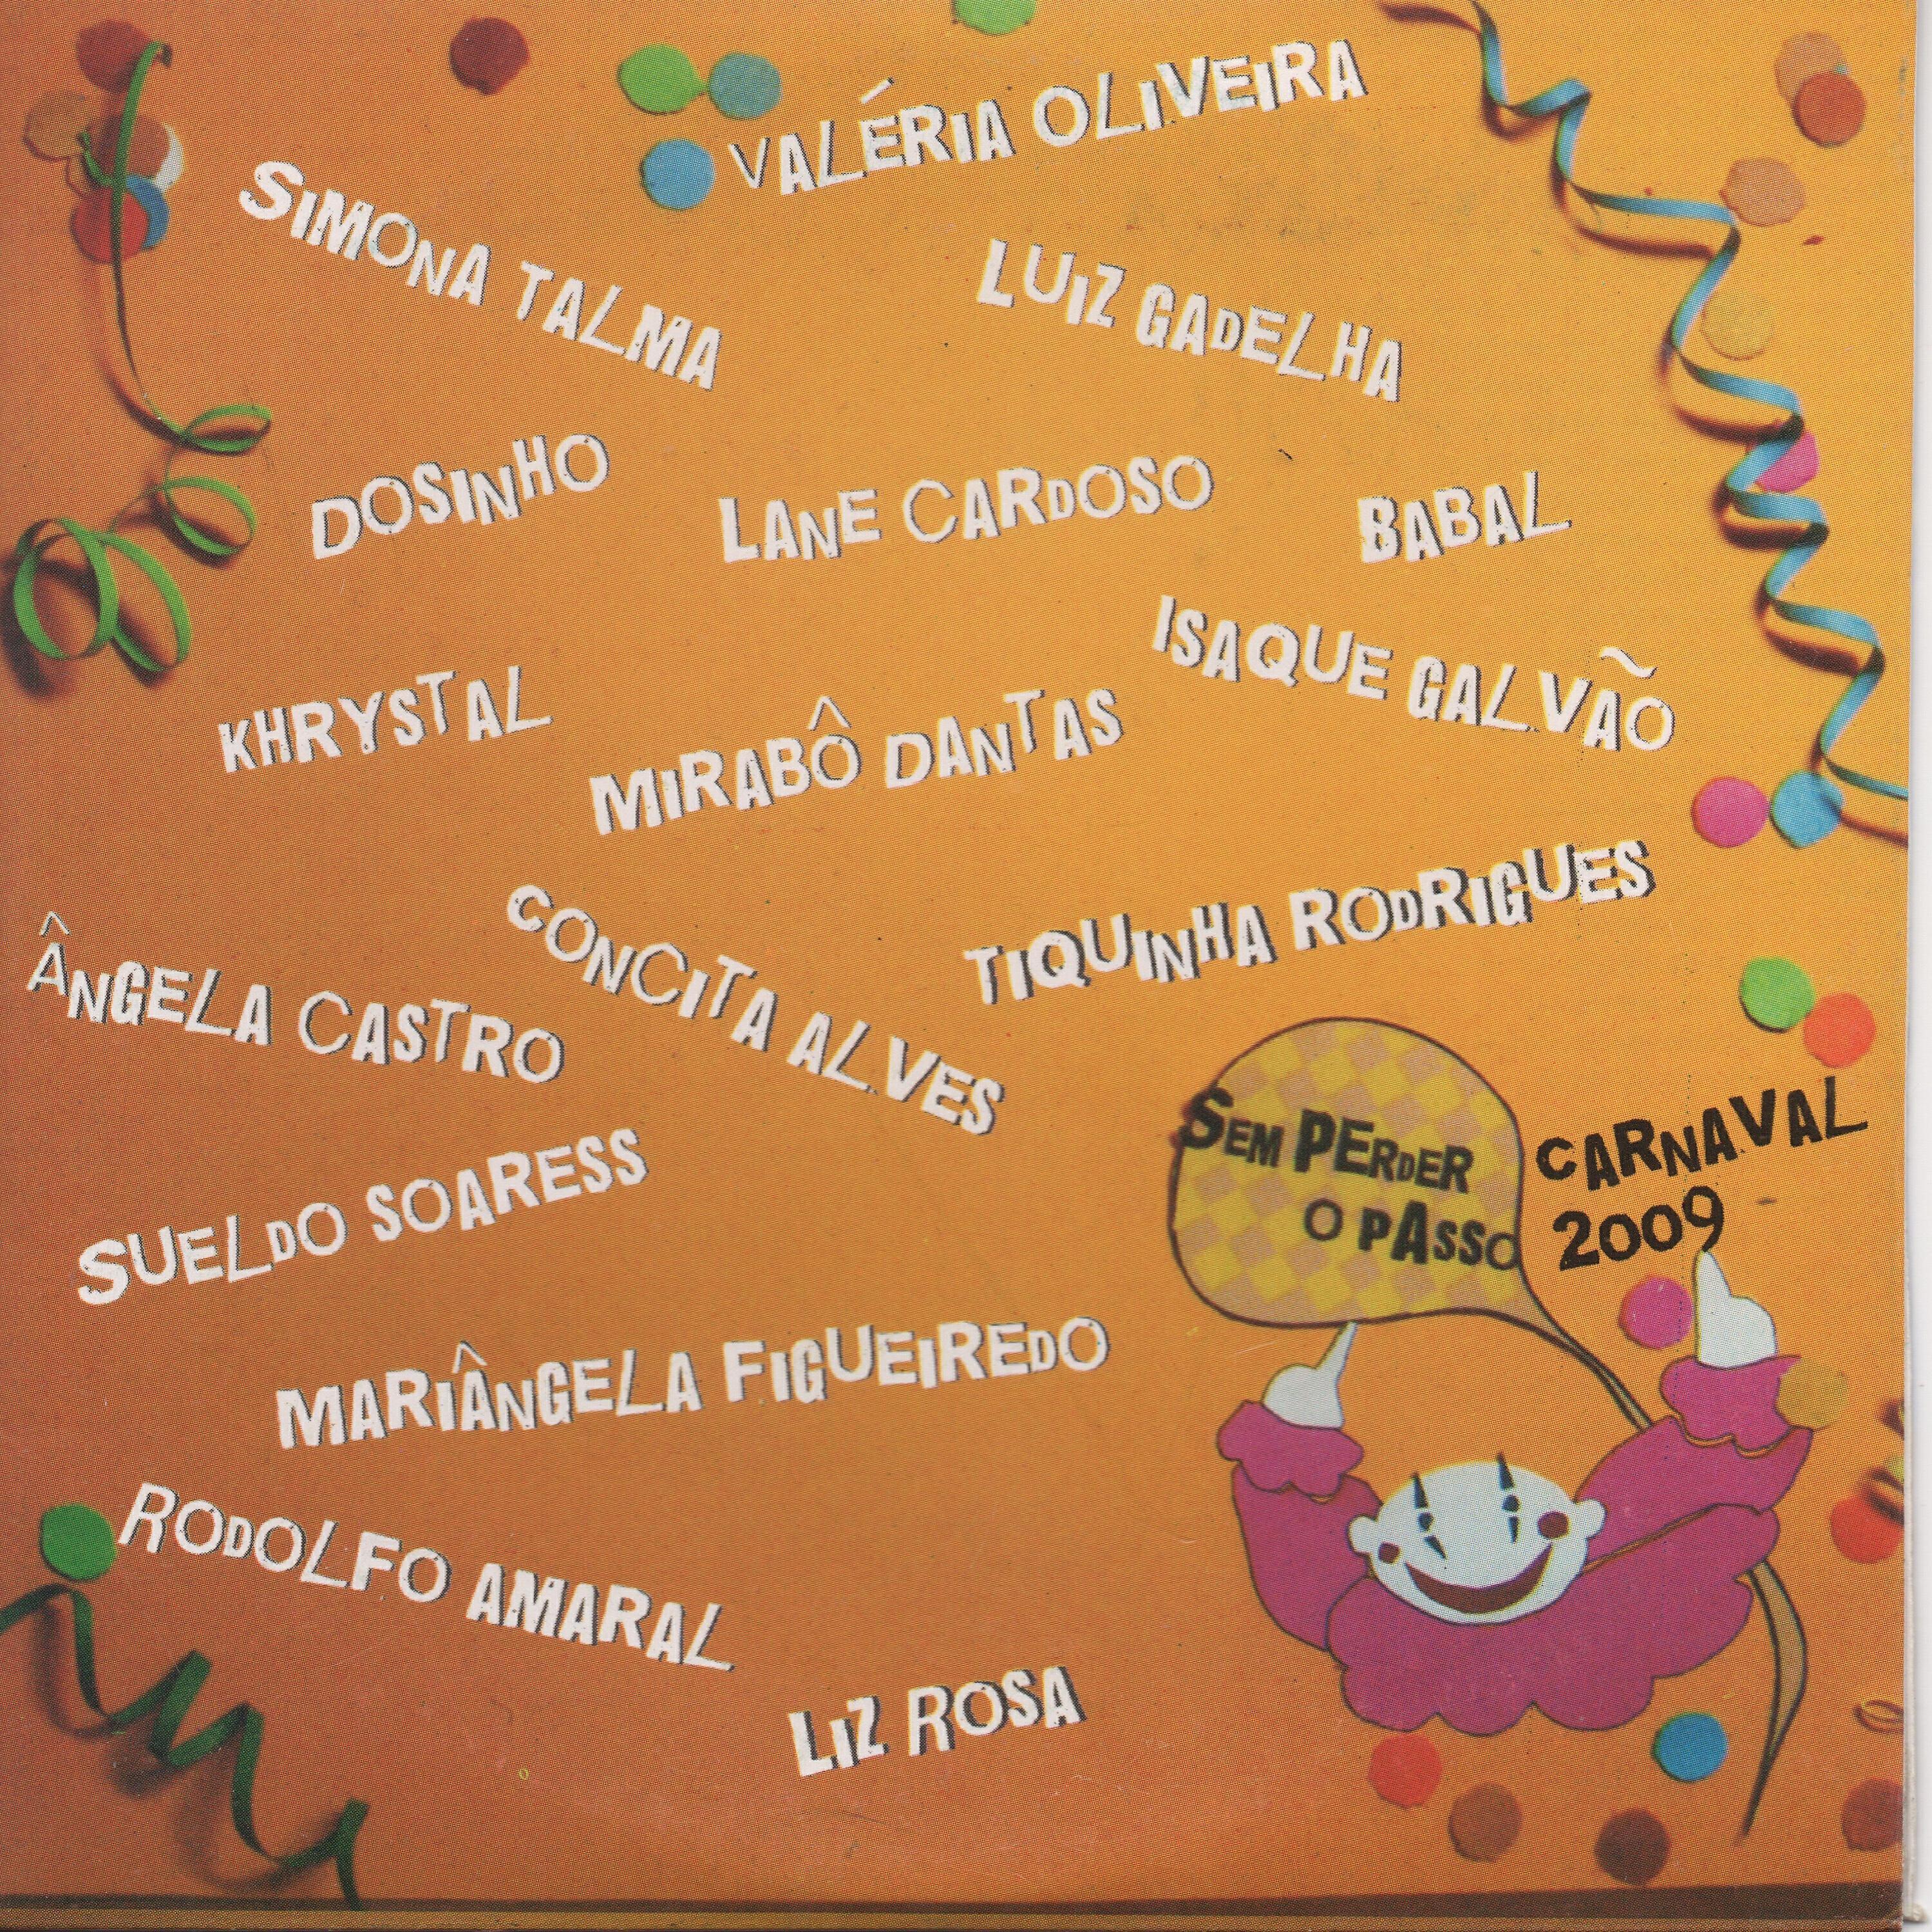 VALÉRIA OLIVEIRA
SIMONA TALMA
LUIZ GADELHA
DOSINHO
LANE CARDOSO
BABAL
ISAQUE GALVÃO
KHRYSTAL
MIRABÔ DANTAS
TIQUINHA RODRIGUES
CONCITA ALVES
ÂNGELA CASTRO
SUELDO SOARESS
SEM PERDER
O PASSO
CARNAVAL
2009
MARIÂNGELA FIGUEIREDO
RODOLFO AMARAL
LIZ ROSA